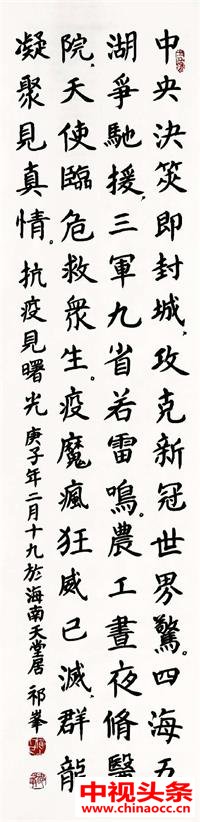 中央決筞即封城，攻克新冠世界驚。四海五
湖爭馳援，三軍九省若雷鳴。農工晝夜脩醫
院，天使臨危救衆生。疫魔瘋狂威已滅，群龍
凝聚見真情。抗疫見曙光 庚子年二月十九於海南天堂居 祁峯
中视头条
www.chinaocc.cn